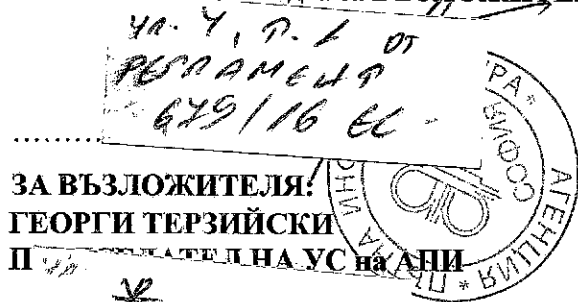 чл. 4, т. 1 от
РЕГЛАМЕНТ
679/16 ЕС
..........
ЗА ВЪЗЛОЖИТЕЛЯ:
ГЕОРГИ ТЕРЗИЙСКИ
НА УС на АПИ
АГЕНЦИЯ
СОФИЯ